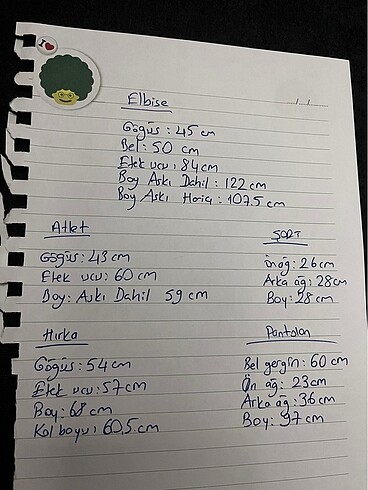 I ❤
Elbise
Göğüs : 45 cm
Bel : 50 cm
Etek ucu : 84 cm
Boy Askı Dahil : 122 cm
Boy Askı Hariç : 107.5 cm
Atlet
Göğüs : 43 cm
Etek ucu : 60 cm
Boy : Askı Dahil 59 cm
ŞORT
Ön ağ : 26 cm
Arka ağ : 28 cm
Boy : 28 cm
Hırka
Göğüs : 54 cm
Etek ucu : 57 cm
Boy : 68 cm
Kol boyu : 60,5 cm
Pantolon
Bel gergin : 60 cm
Ön ağ : 23 cm
Arka ağ : 36 cm
Boy : 97 cm